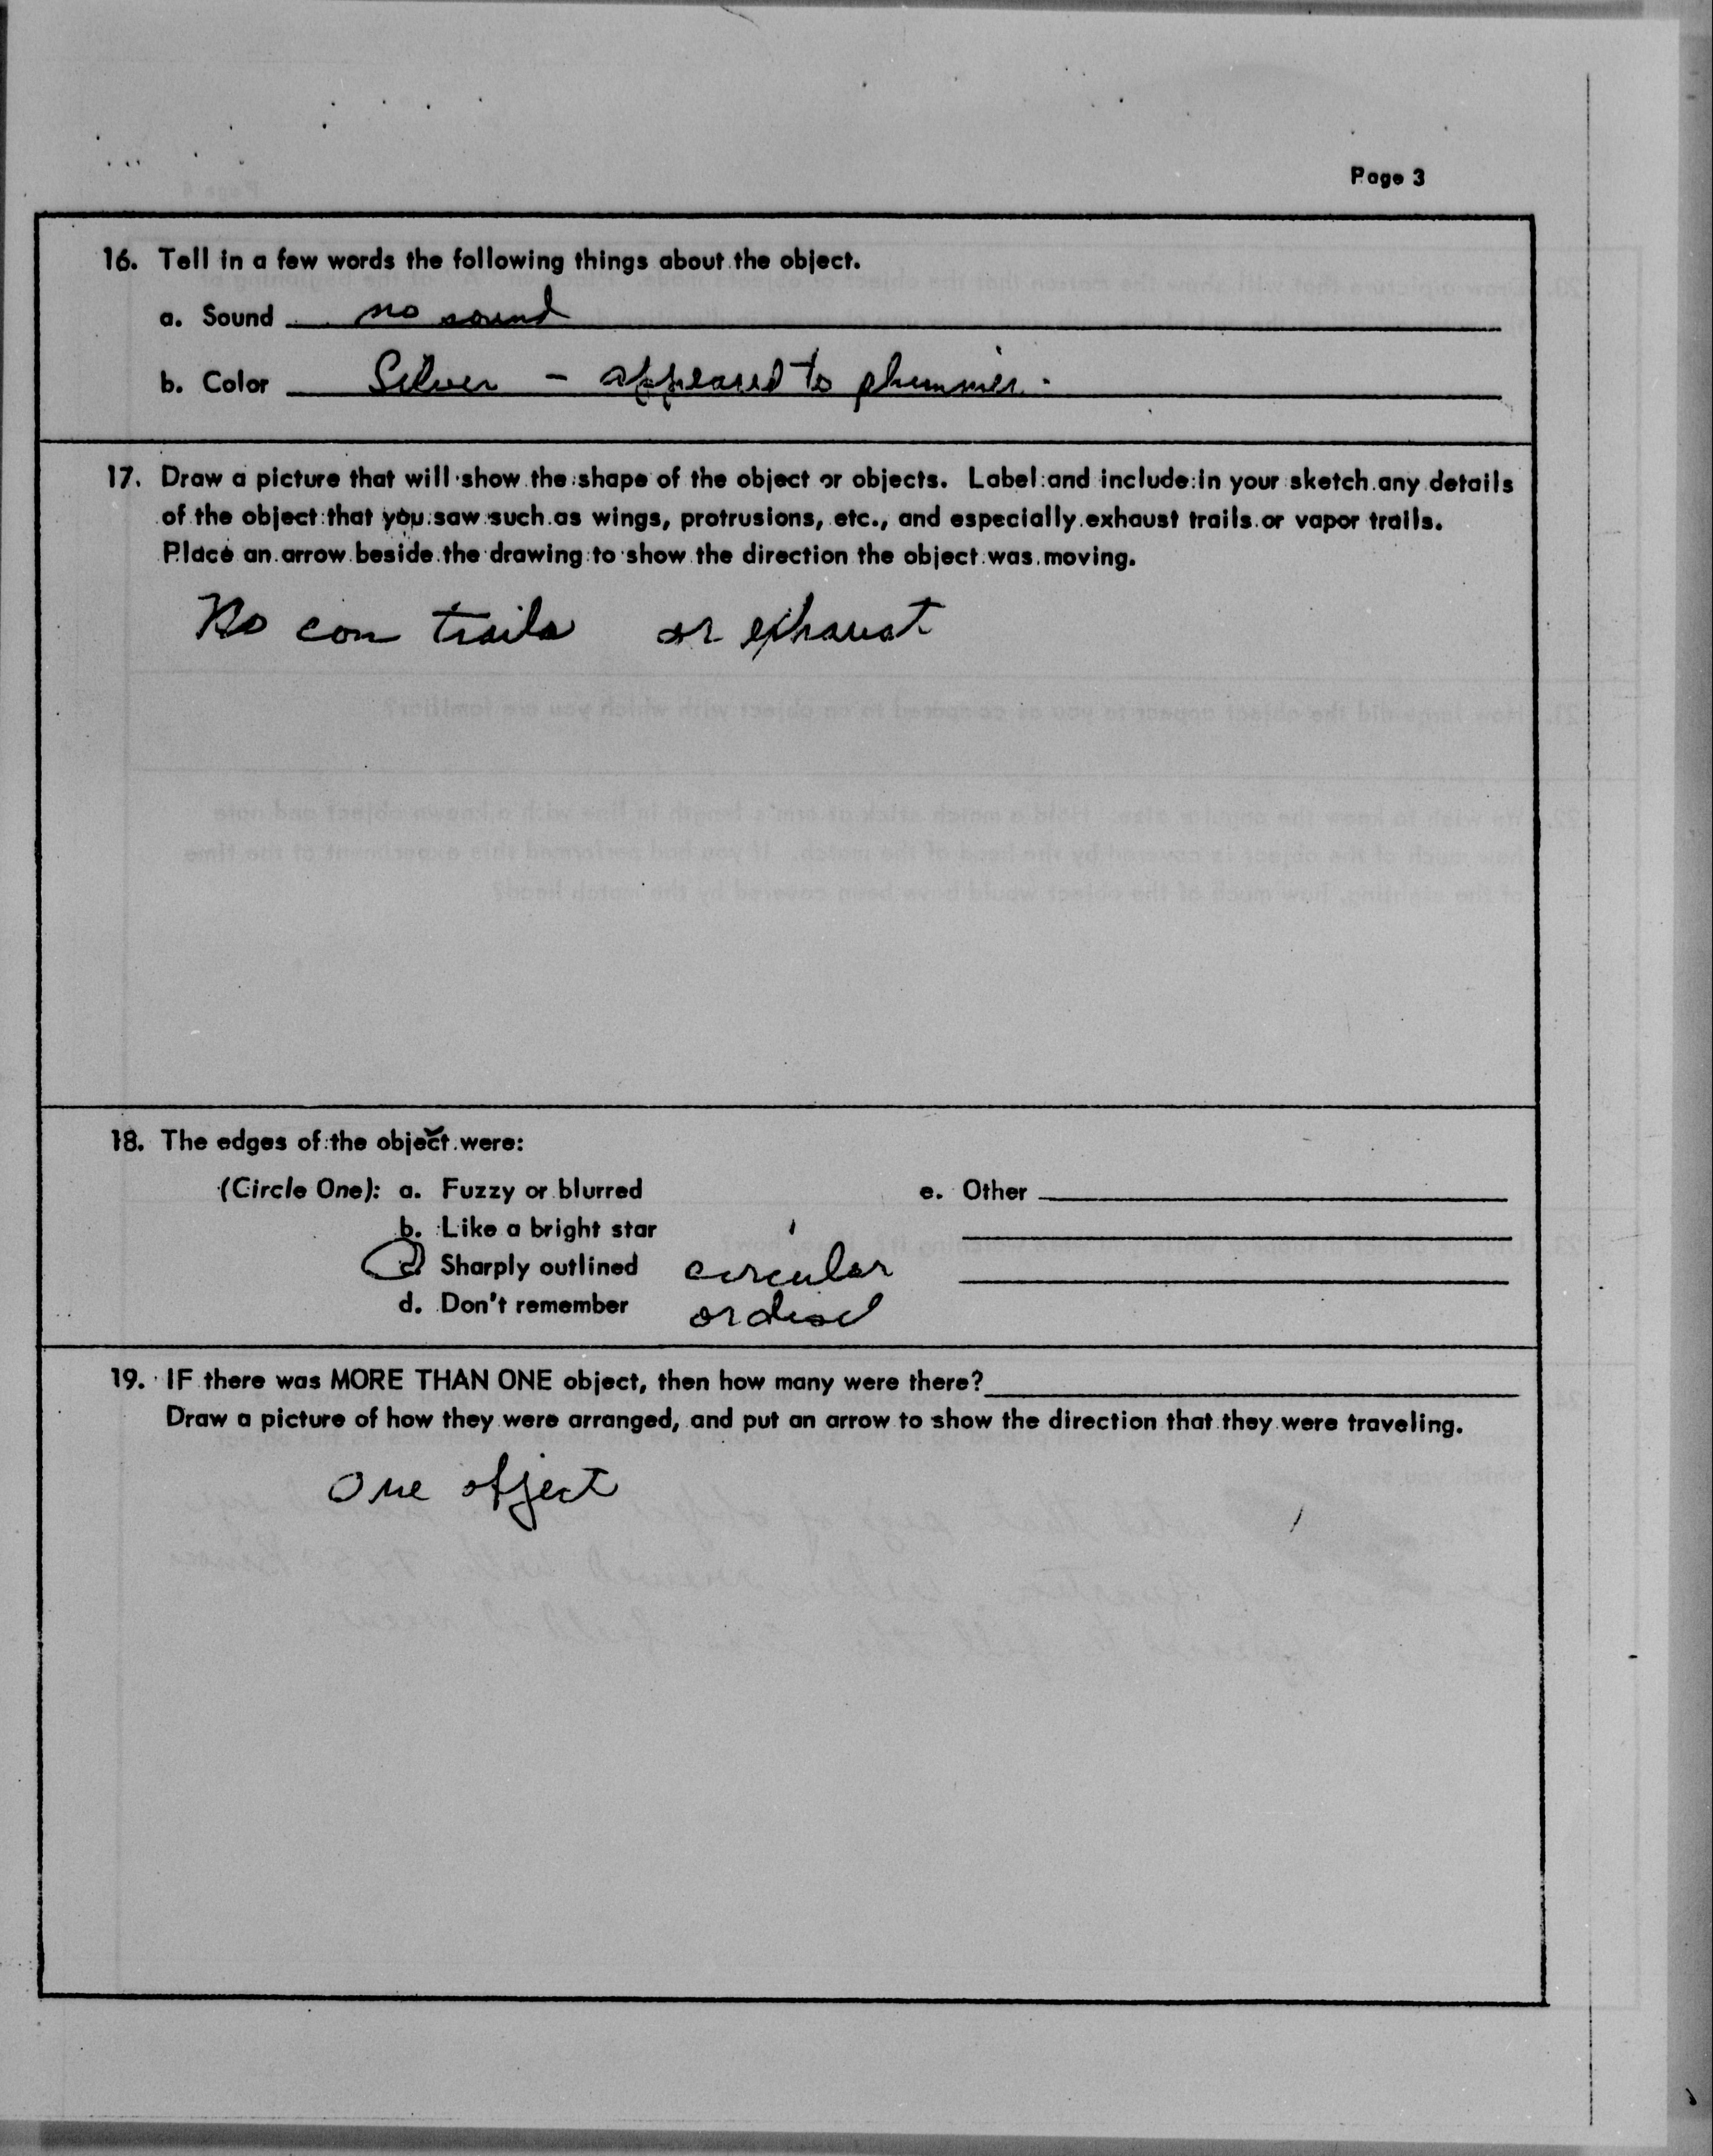 Page 3
16. Tell in a few words the following things about the object.
a. Sound no sound
b. Color Silver - appeared to shimmer.
17. Draw a picture that will show the shape of the object or objects. Label and include in your sketch any details
of the object that you saw such as wings, protrusions, etc., and especially exhaust trails or vapor trails.
Place an arrow beside the drawing to show the direction the object was moving.
No con trails or exhaust
18. The edges of the object were:
(Circle One): a. Fuzzy or blurred e. Other
b. Like a bright star
c. Sharply outlined circular
d. Don't remember or disc
19. IF there was MORE THAN ONE object, then how many were there?
Draw a picture of how they were arranged, and put an arrow to show the direction that they were traveling.
One object